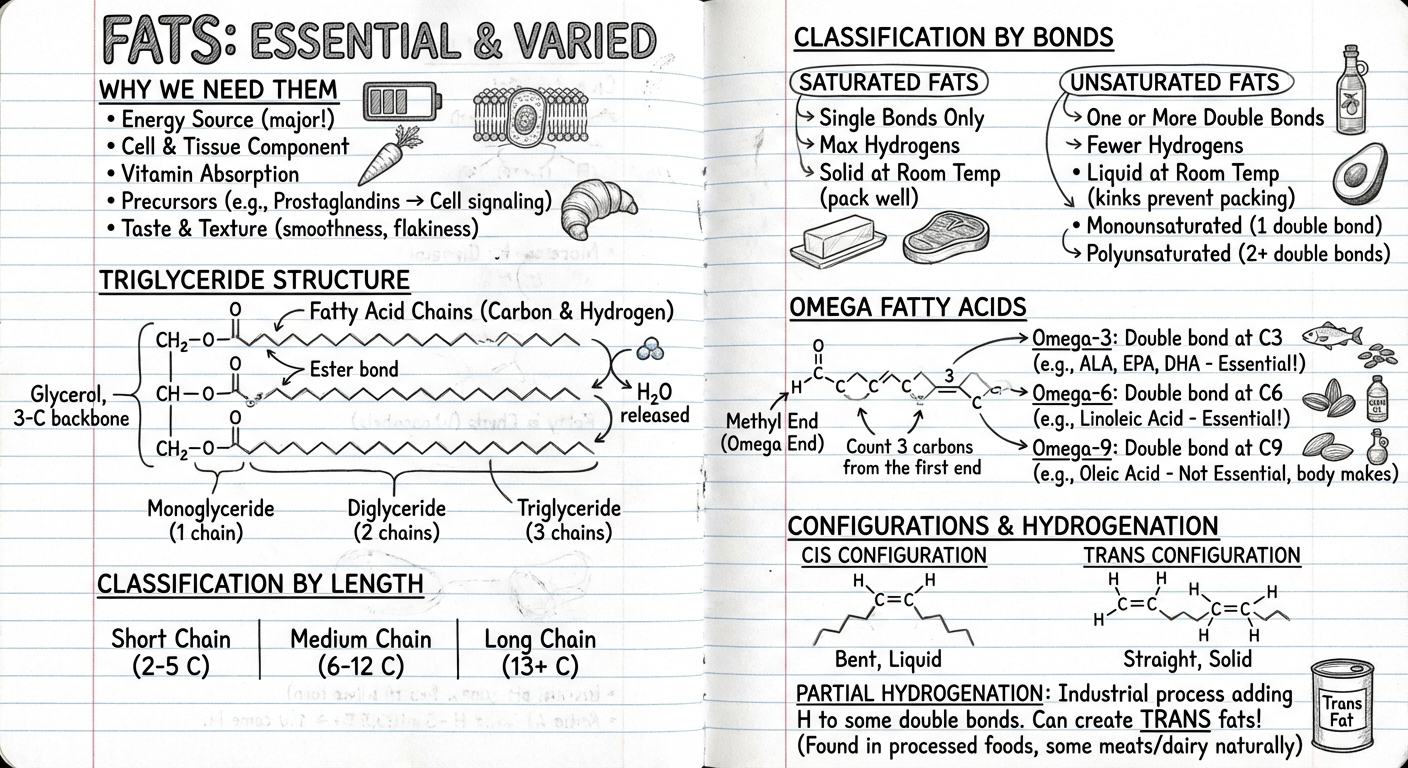 FATS: ESSENTIAL & VARIED
WHY WE NEED THEM
• Energy Source (major!)
• Cell & Tissue Component
• Vitamin Absorption
• Precursors (e.g., Prostaglandins → Cell signaling)
• Taste & Texture (smoothness, flakiness)
TRIGLYCERIDE STRUCTURE
Fatty Acid Chains (Carbon & Hydrogen)
O
CH₂–O
Ester bond
O
CH–O
Glycerol,
3-C backbone
H₂O
released
O
CH₂–O
Monoglyceride
(1 chain)
Diglyceride
(2 chains)
Triglyceride
(3 chains)
CLASSIFICATION BY LENGTH
Short Chain
(2-5 C)
Medium Chain
(6-12 C)
Long Chain
(13+ C)
CLASSIFICATION BY BONDS
SATURATED FATS
Single Bonds Only
Max Hydrogens
Solid at Room Temp
(pack well)
UNSATURATED FATS
One or More Double Bonds
→ Fewer Hydrogens
• Liquid at Room Temp
(kinks prevent packing)
• Monounsaturated (1 double bond)
Polyunsaturated (2+ double bonds)
OMEGA FATTY ACIDS
O
H C C C C 3 C
Methyl End
(Omega End)
Count 3 carbons
from the first end
Omega-3: Double bond at C3
(e.g., ALA, EPA, DHA - Essential!)
Omega-6: Double bond at C6
(e.g., Linoleic Acid - Essential!)
Omega-9: Double bond at C9
(e.g., Oleic Acid - Not Essential, body makes)
CONFIGURATIONS & HYDROGENATION
CIS CONFIGURATION
H H
C=C
Bent, Liquid
TRANS CONFIGURATION
H H H H
C=C C=C
H H H
Straight, Solid
PARTIAL HYDROGENATION: Industrial process adding
H to some double bonds. Can create TRANS fats!
(Found in processed foods, some meats/dairy naturally)
Trans
Fat